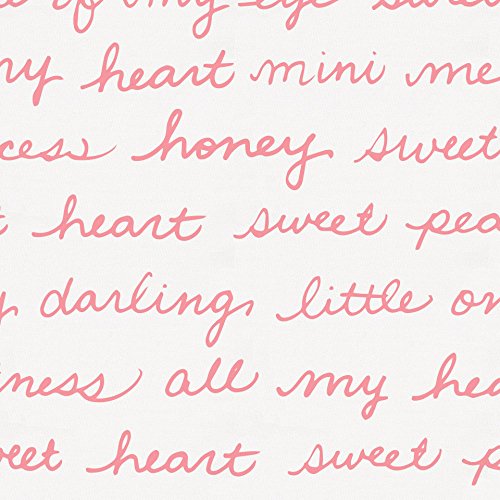 of my eye
ny heart mini me
cess honey sweet
t heart sweet pea
y darling little on
iness all my hea
weet heart sweet p